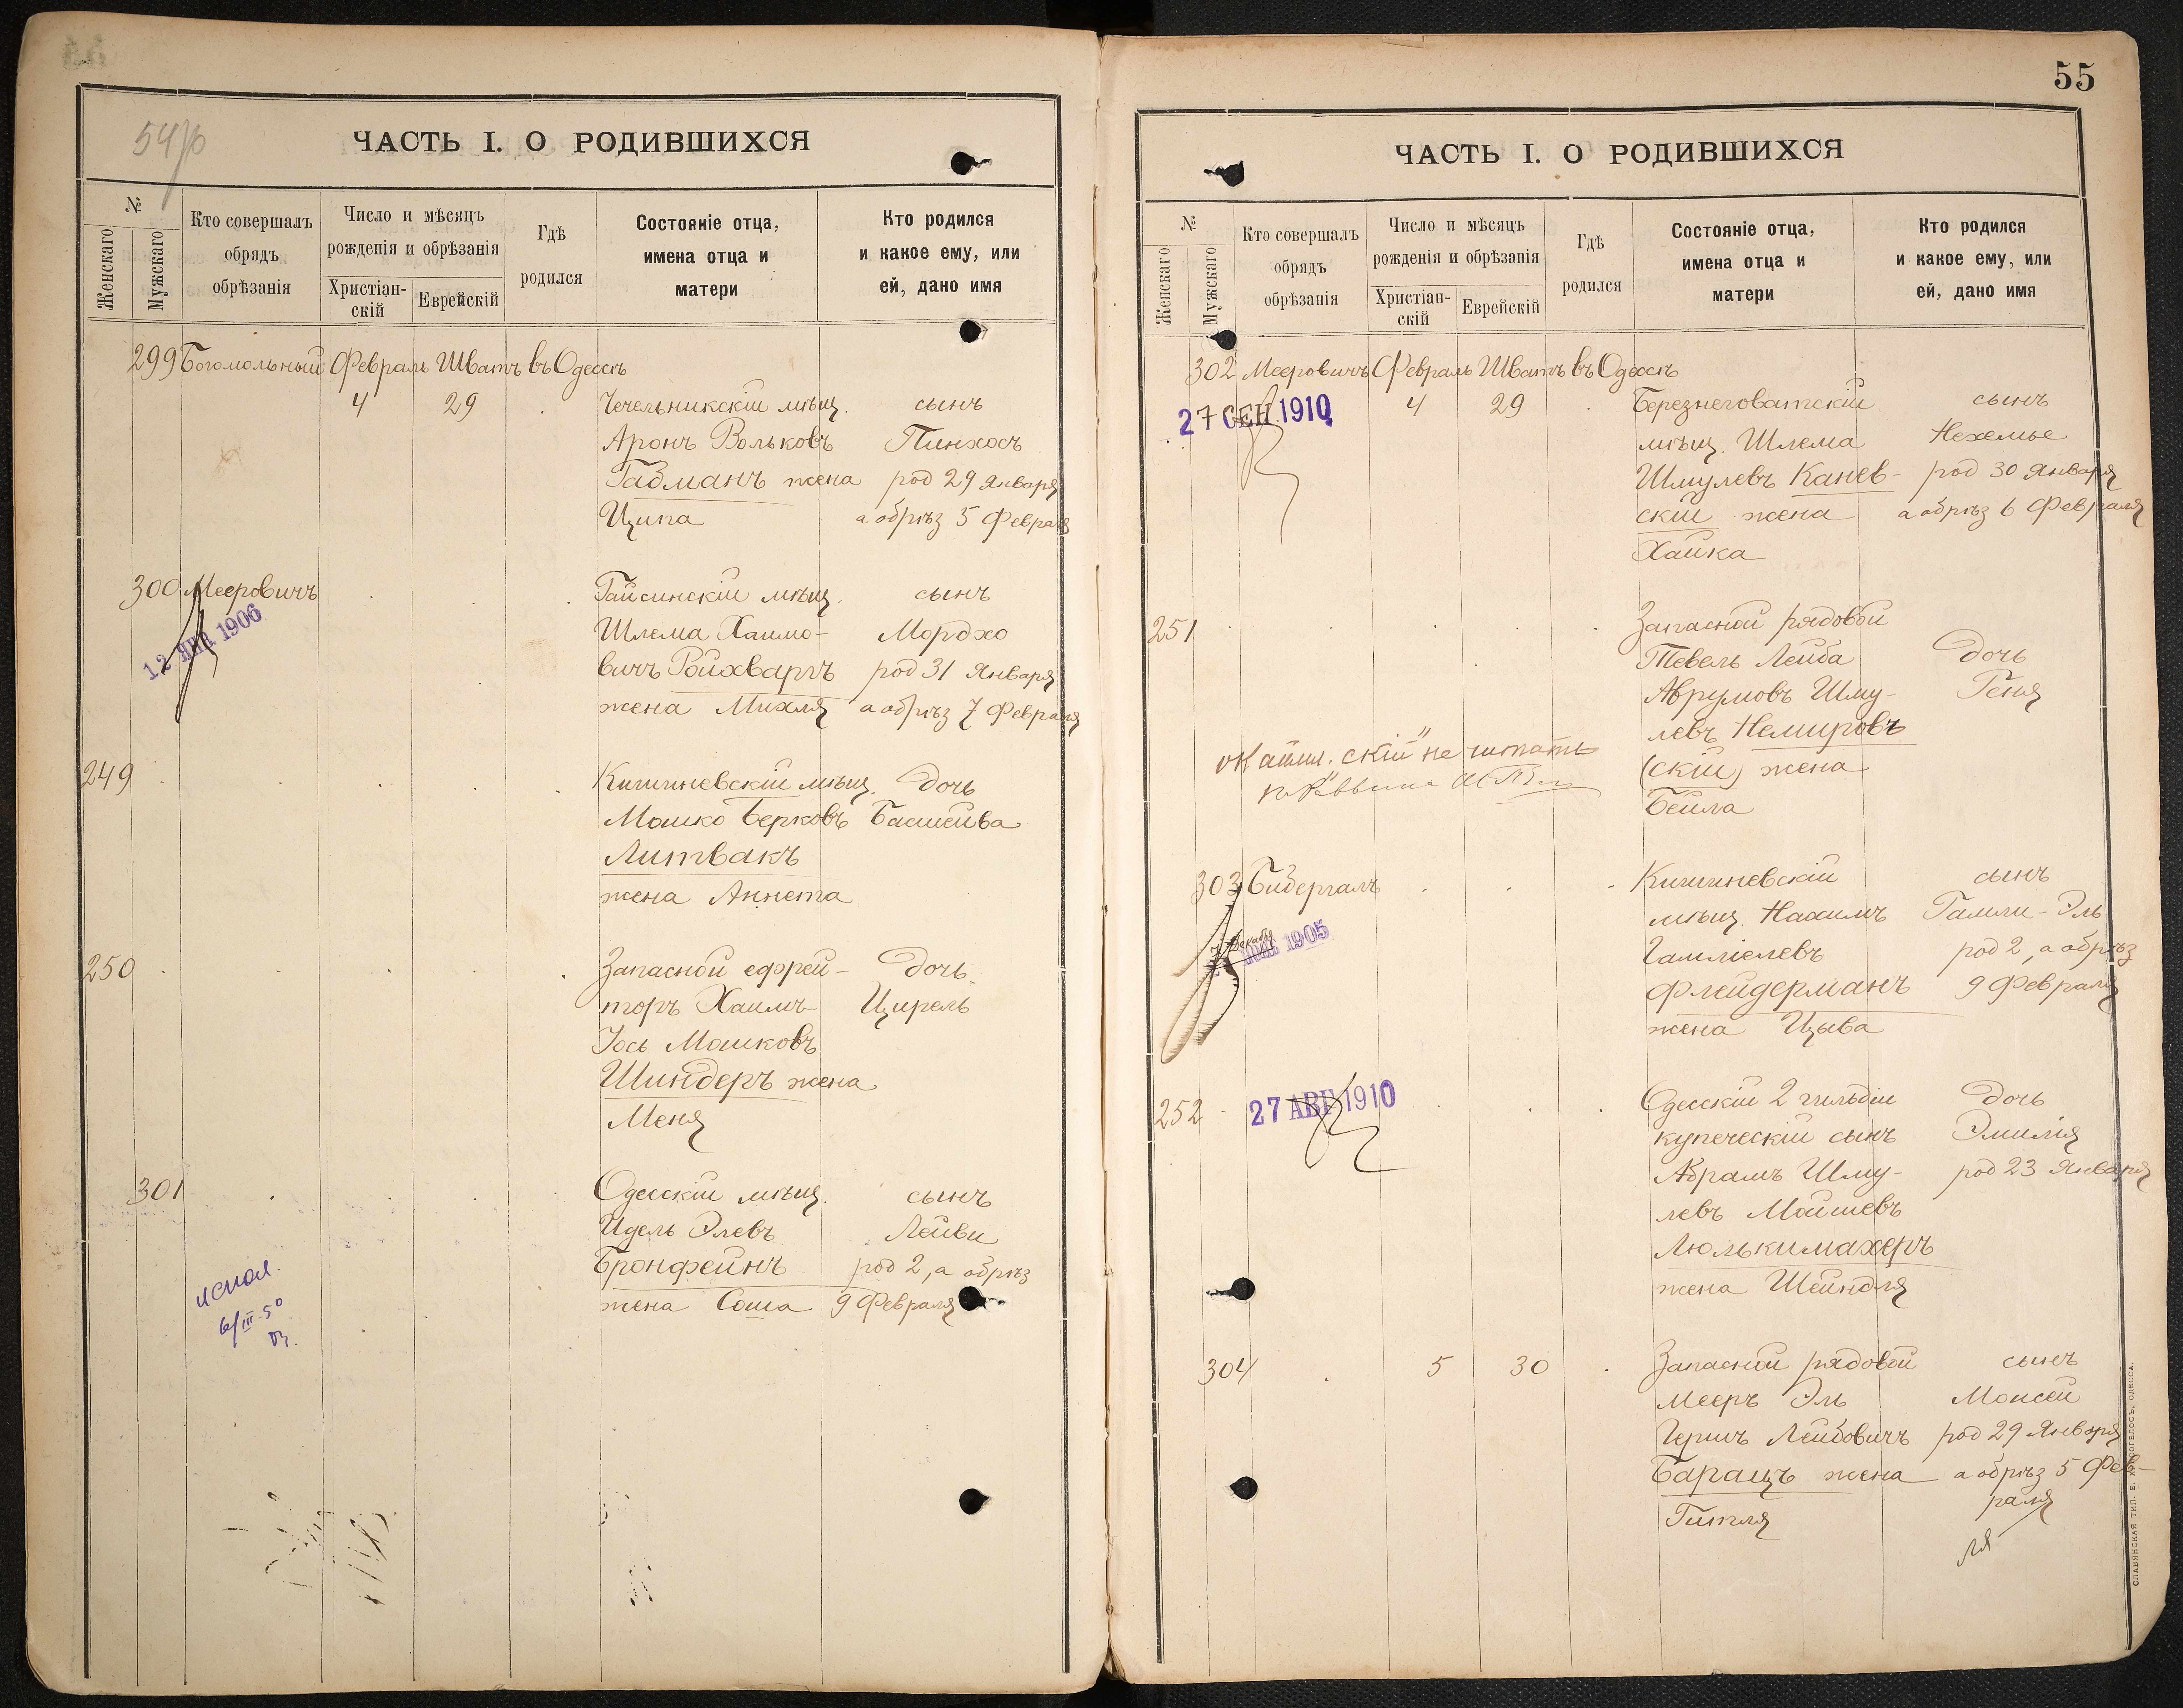 54 об
ЧАСТЬ I. О РОДИВШИХСЯ
№
Женскаго
Мужскаго
Кто совершалъ
обрядъ
обрѣзанія
Число и мѣсяцъ
рожденія и обрѣзанія
Христіан-
скій
Еврейскій
Гдѣ
родился
Состояніе отца,
имена отца и
матери
Кто родился
и какое ему, или
ей, дано имя
299 Богомольный Февраль Шватъ въ Одессѣ
4 29 Чечельникскій мѣщ. сынъ
Аронъ Вольковъ Пинхосъ
Габманъ жена род 29 Января
Ципа а обрѣз 5 Февраля
300 Мееровичъ Гайсинскій мѣщ. сынъ
12 ЯНВ 1906
Шлема Хаимо- Мордхо
вичъ Ройхваргъ род 31 Января
жена Михля а обрѣз 7 Февраля
249 Кишиневскій мѣщ. дочь
Мошко Берковъ Басшейва
Литвакъ
жена Аннета
250 Запасной ефрей- дочь
торъ Хаимъ Цирель
Іось Мошковъ
Шиндеръ жена
Меня
301 Одесскій мѣщ. сынъ
Идель Элевъ Лейви
Бронфейнъ род 2, а обрѣз
жена Соша 9 Февраля
испол.
6/III-50
55
ЧАСТЬ I. О РОДИВШИХСЯ
№
Женскаго
Мужскаго
Кто совершалъ
обрядъ
обрѣзанія
Число и мѣсяцъ
рожденія и обрѣзанія
Христіан-
скій
Еврейскій
Гдѣ
родился
Состояніе отца,
имена отца и
матери
Кто родился
и какое ему, или
ей, дано имя
302 Мееровичъ Февраль Шватъ въ Одессѣ
27 СЕН 1910
4 29 Березнеговатскій сынъ
мѣщ. Шлема Нехемье
Шмулевъ Канев- род 30 Января
скій жена а обрѣз 6 Февраля
Хайка
251 Запасной рядовой
Тевель Лейба дочь
Аврумовъ Шму- Геня
левъ Немировъ
скій" не читать
(скій) жена
Бейла
303 Бибергалъ Кишиневскій сынъ
мѣщ. Нахимъ Гамли-Эль
декабр 1905
Гамліелевъ род 2, а обрѣз
Флейдерманъ 9 Февраля
жена Цыва
252 27 АВГ 1910 Одесскій 2 гильдіи дочь
купеческій сынъ Эмилія
Абрамъ Шму- род 23 Января
левъ Мошевъ
Люлькимахеръ
жена Шейндля
304 5 30 Запасной рядовой сынъ
Мееръ Эль Моисей
Гершъ Лейбовичъ род 29 Января
Барацъ жена а обрѣз 5 Фев-
Гитля раля
ля
СЛАВЯНСКАЯ ТИП. Е. ХРИСОГЕЛОСЪ, ОДЕССА.